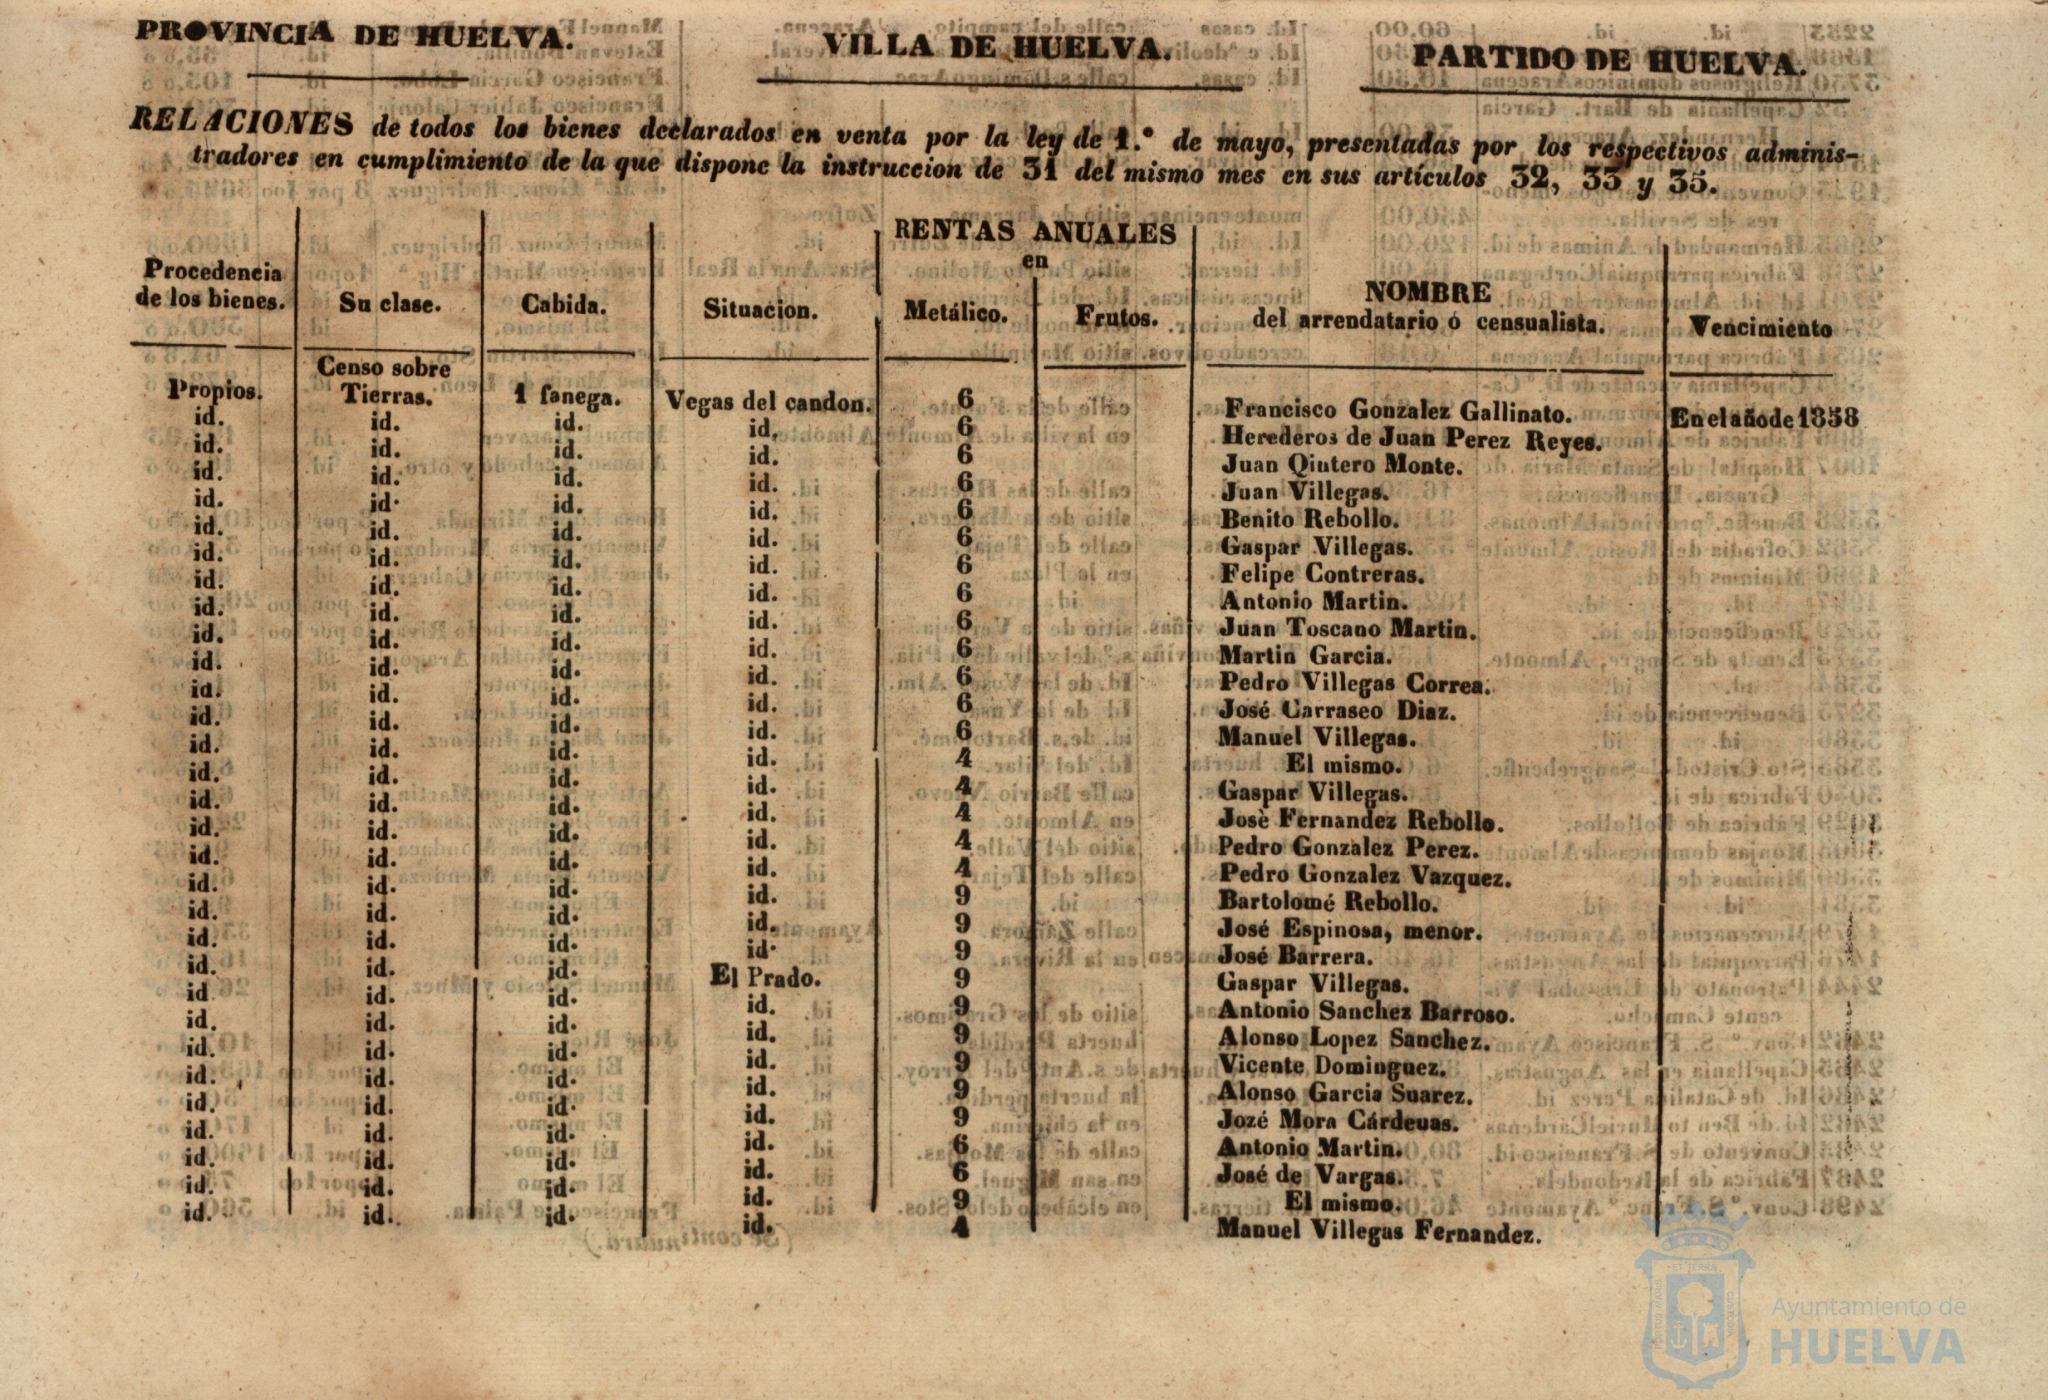 PROVINCIA DE HUELVA. VILLA DE HUELVA. PARTIDO DE HUELVA.
RELACIONES de todos los bienes declarados en venta por la ley de 1.º de mayo, presentadas por los respectivos adminis-
tradores en cumplimiento de la que dispone la instruccion de 31 del mismo mes en sus artículos 32, 33 y 35.
RENTAS ANUALES
en
Procedencia
de los bienes. Su clase. Cabida. Situacion. Metálico. Frutos. NOMBRE
del arrendatario ó censualista. Vencimiento
Censo sobre
Propios. Tierras. 1 fanega. Vegas del candon. 6 Francisco Gonzalez Gallinato. En el año de 1858
id. id. id. id. 6 Herederos de Juan Perez Reyes.
id. id. id. id. 6 Juan Qiutero Monte.
id. id. id. id. 6 Juan Villegas.
id. id. id. id. 6 Benito Rebollo.
id. id. id. id. 6 Gaspar Villegas.
id. id. id. id. 6 Felipe Contreras.
id. id. id. id. 6 Antonio Martin.
id. id. id. id. 6 Juan Toscano Martin.
id. id. id. id. 6 Martin Garcia.
id. id. id. id. 6 Pedro Villegas Correa.
id. id. id. id. 6 José Carrasco Diaz.
id. id. id. id. 6 Manuel Villegas.
id. id. id. id. 4 El mismo.
id. id. id. id. 4 Gaspar Villegas.
id. id. id. id. 4 Josè Fernandez Rebollo.
id. id. id. id. 4 Pedro Gonzalez Perez.
id. id. id. id. 4 Pedro Gonzalez Vazquez.
id. id. id. id. 9 Bartolomé Rebollo.
id. id. id. id. 9 José Espinosa, menor.
id. id. id. id. 9 José Barrera.
id. id. id. El Prado. 9 Gaspar Villegas.
id id. id. id. 9 Antonio Sanchez Barroso.
id. id. id. id. 9 Alonso Lopez Sanchez.
id. id. id. id. 9 Vicente Dominguez.
id. id. id. id. 9 Alonso Garcia Suarez.
id. id. id. id. 9 Jozé Mora Cárdenas.
id. id. id. id. 6 Antonio Martin.
id. id. id. id. 6 José de Vargas.
id. id. id. id. 9 El mismo.
id. id. id. id. 4 Manuel Villegas Fernandez.
Ayuntamiento de
HUELVA